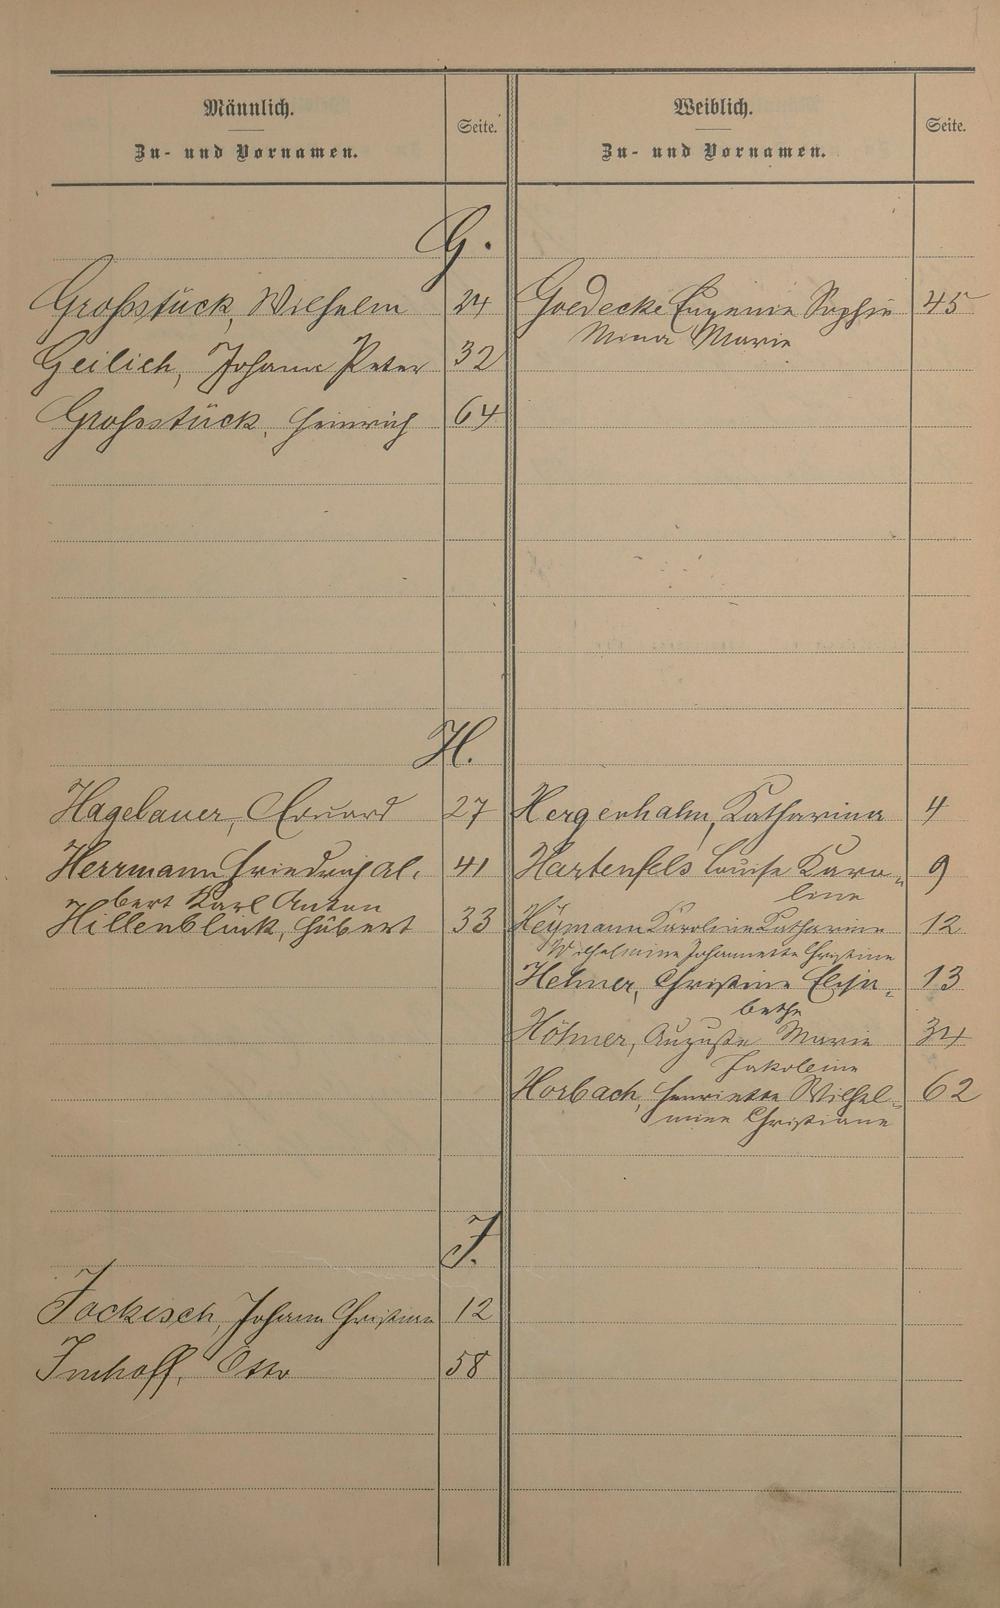 Männlich.
Zu- und Vornamen.
Seite.
Weiblich.
Zu- und Vornamen.
Seite.
G.
Großstück, Wilhelm 24
Goedecke Eugenie Sophie 45
Mina Marie
Geilich, Johann Peter 32
Großstück, Heinrich 64
H.
Hagelauer, Eduard 27
Hergenhahn, Katharina 4
Herrmann Friedrich Al- 41
bert Karl Anton
Hartenfels Louise Karo- 9
line
Hillenblink, Hubert 33
Heymann Karoline Katharine 12
Wilhelmine Johannette Christine
Helmer, Christine Elisa- 13
bethe
Höhner, Auguste Marie 34
Jakobine
Horbach, Henriette Wilhel- 62
mine Christiane
J.
Jockisch, Johann Christian 12
Imhoff, Otto 58